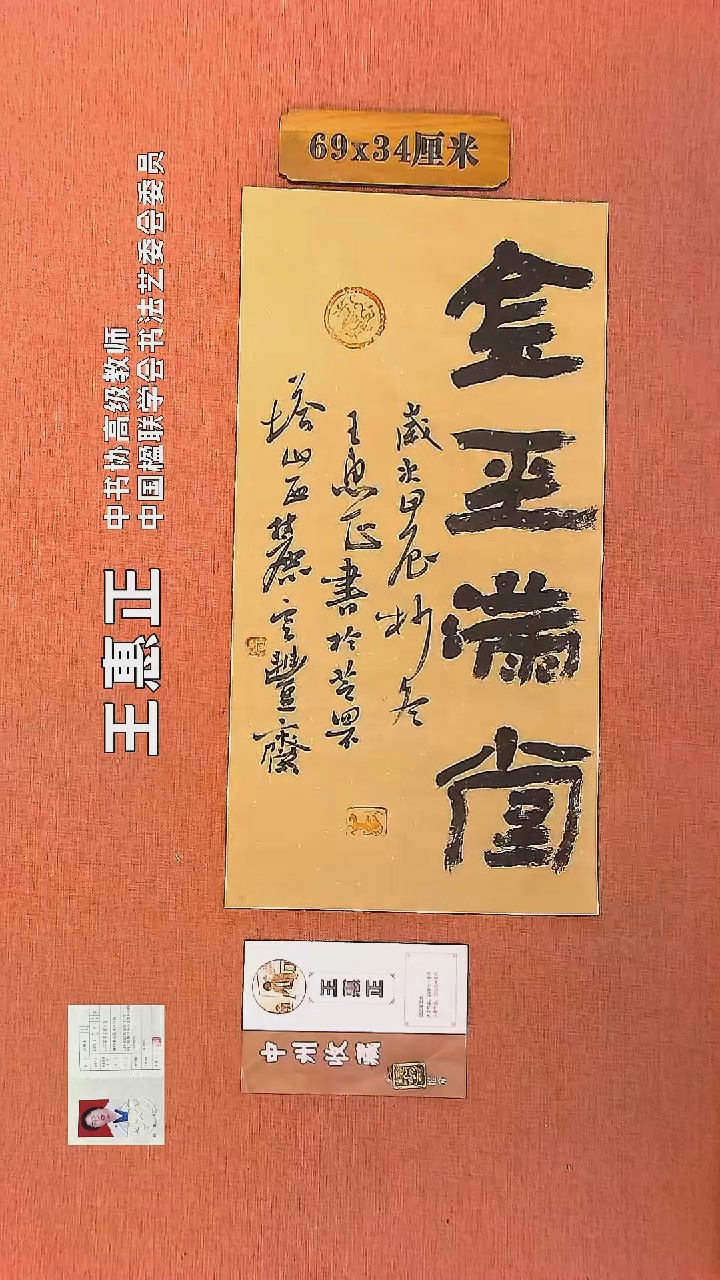 69x34厘米
金玉满堂
歲次甲辰抄冬
王惠正書於苍罘
塔山西麓
豐齋
王惠正
中书协高级教师
中国楹联学会书法艺委会委员
王惠正
中州收藏